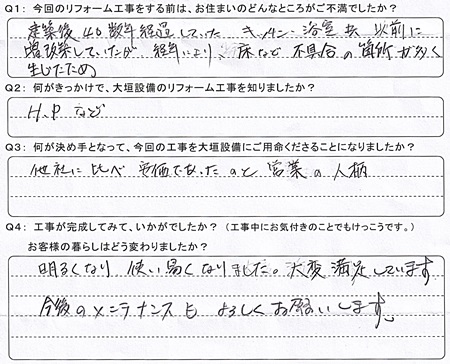 Q1: 今回のリフォーム工事をする前は、お住まいのどんなところがご不満でしたか？
建築後40数年経過していた キッチン・浴室共 以前に
増改築していたが 経年により、床など不具合の箇所が多く
生じたため
Q2: 何がきっかけで、大垣設備のリフォーム工事を知りましたか？
H.P など
Q3: 何が決め手となって、今回の工事を大垣設備にご用命くださることになりましたか？
他社に比べ 安価であったのと 営業の人柄
Q4: 工事が完成してみて、いかがでしたか？（工事中にお気付きのことでもけっこうです。）
お客様の暮らしはどう変わりましたか？
明るくなり 使い易くなりました。大変満足しています
今後のメンテナンスも よろしくお願いします。